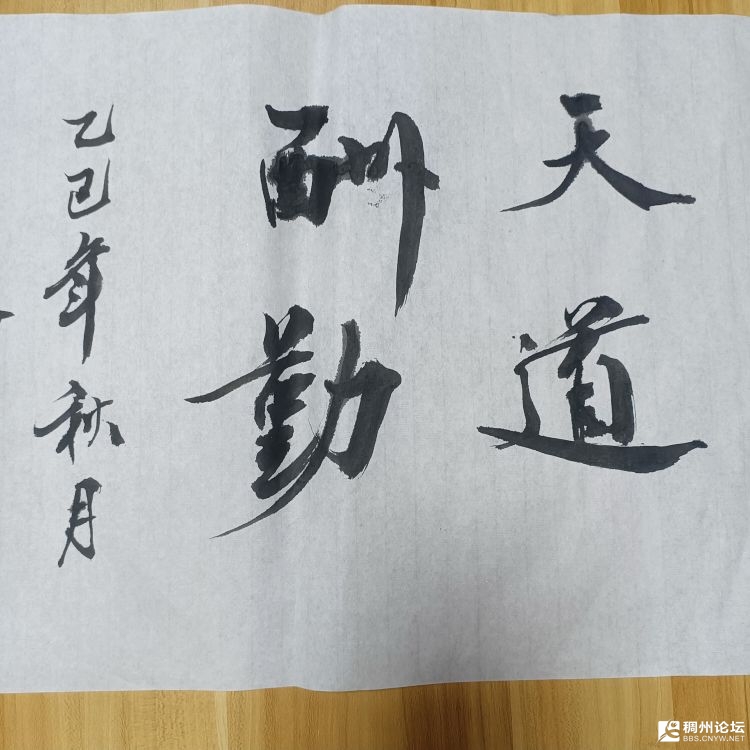 天道
酬勤
乙巳年秋月
稠州论坛
BBS.CNYW.NET